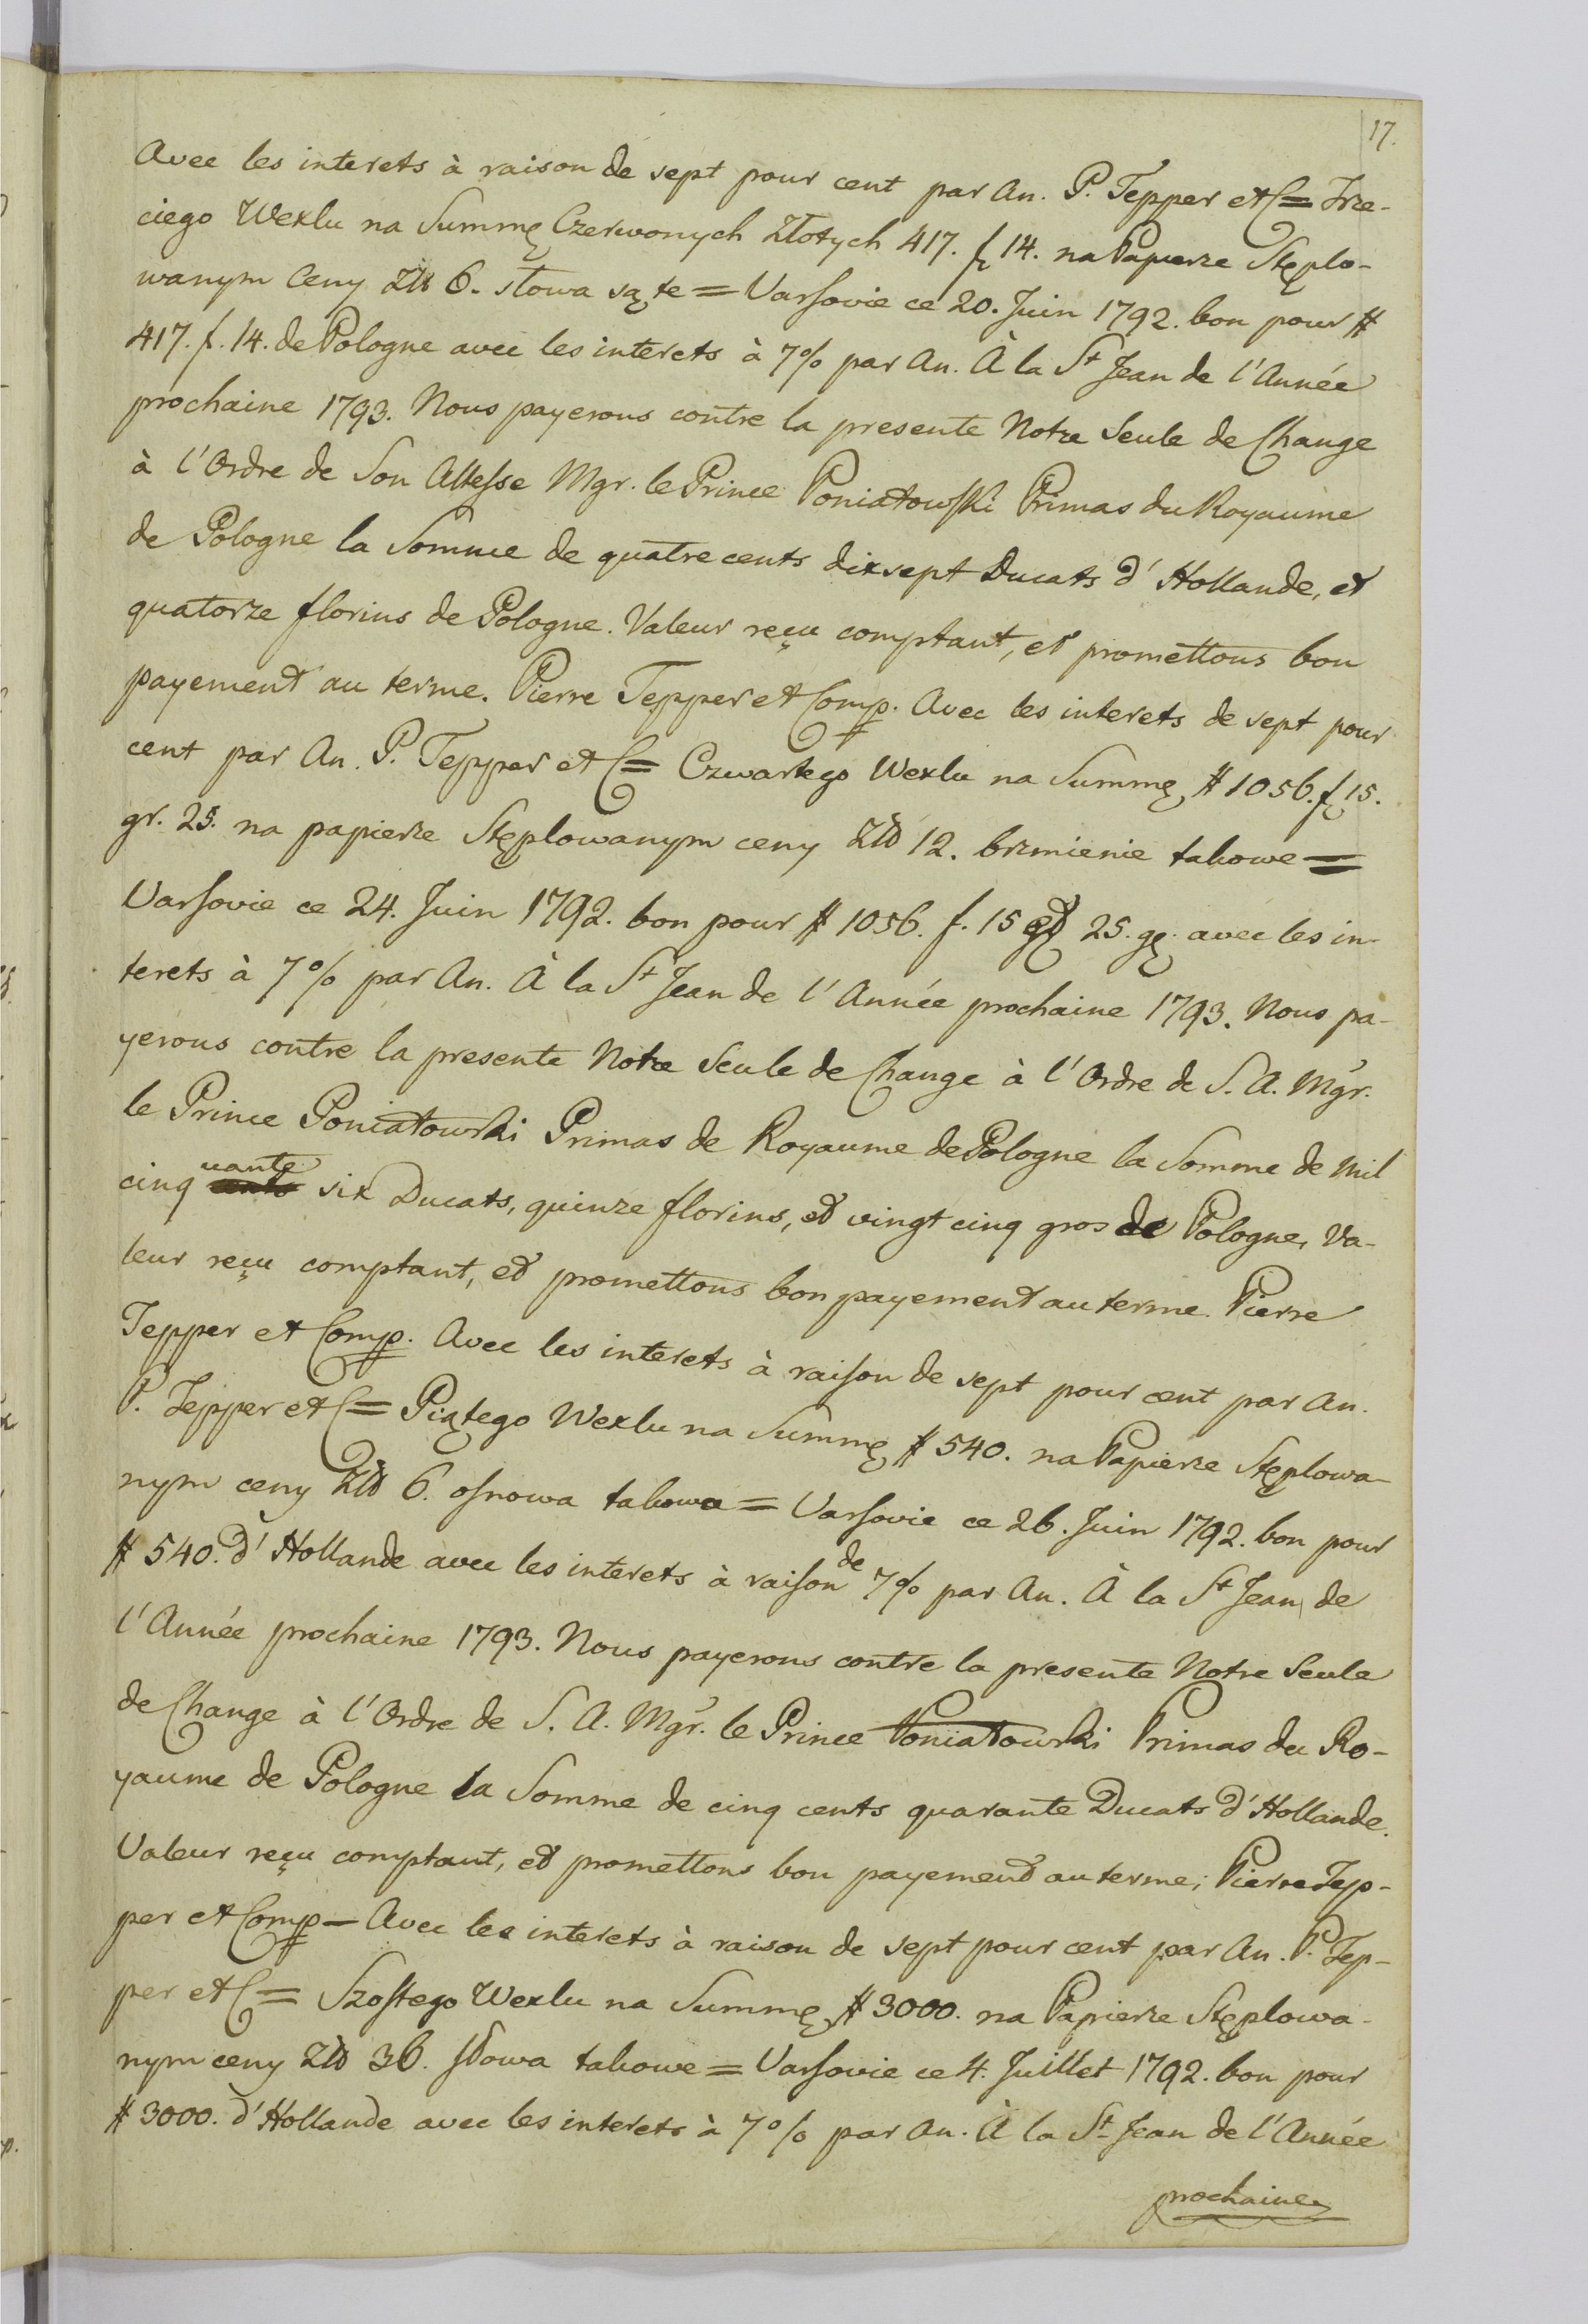 17.
Avec les interets à raison de sept pour cent par An. P. Tepper et C= Trze-
ciego Wexlu na Summę Czerwonych Złotych 417. f 14. na Papierze Stęplo-
wanym Ceny Zło 6. słowa są te = Varsovie ce 20. Juin 1792. bon pour #
417. f. 14. de Pologne avec les interets à 7% par An. À la St Jean de l'Année
prochaine 1793. Nous payerons contre la presente Notre Seule de Change
à l'Ordre de Son Altesse Mgr. le Prince Poniatowski Primas du Royaume
de Pologne la Somme de quatrecents dixsept Ducats d'Hollande, et
quatorze florins de Pologne. Valeur reçu comptant, et promettons bon
payement au terme. Pierre Tepper et Comp. Avec les interets de sept pour
cent par An. P. Tepper et C= Czwartego Wexlu na Summę # 1056. f 15.
gr. 25. na papierze Stęplowanym ceny Zło 12. brzmienie takowe =
Varsovie ce 24. Juin 1792. bon pour # 1056. f. 15 et 25. g. avec les in-
terets à 7% par An. À la St Jean de l'Année prochaine 1793. Nous pa-
yerons contre la presente Notre Seule de Change à l'Ordre de S. A. Mgr.
le Prince Poniatowski Primas de Royaume de Pologne la Somme de mil
cinq uante six Ducats, quinze florins, et vingt cinq gros de Pologne, Va-
leur reçu comptant, et promettons bon payement au terme. Pierre
Tepper et Comp. Avec les interets à raison de sept pour cent par An.
P. Tepper et C= Piątego Wexlu na Summę # 540. na Papierze Stęplowa-
nym ceny Zło 6. osnowa takowa = Varsovie ce 26. Juin 1792. bon pour
# 540. d'Hollande avec les interets à raison de 7% par An. À la St Jean de
l'Année prochaine 1793. Nous payerons contre la presente Notre Seule
de Change à l'Ordre de S. A. Mgr. le Prince Poniatowski Primas du Ro-
yaume de Pologne la Somme de cinq cents quarante Ducats d'Hollande.
Valeur reçu comptant, et promettons bon payement au terme; Pierre Tep-
per et Comp - Avec les interets à raison de sept pour cent par An. P. Tep-
per et C= Szostego Wexlu na Summę # 3000. na Papierze Stęplowa-
nym ceny Zło 36. słowa takowe = Varsovie ce 4. Juillet 1792. bon pour
# 3000. d'Hollande avec les interets à 7% par An. À la St Jean de l'Année
prochaine